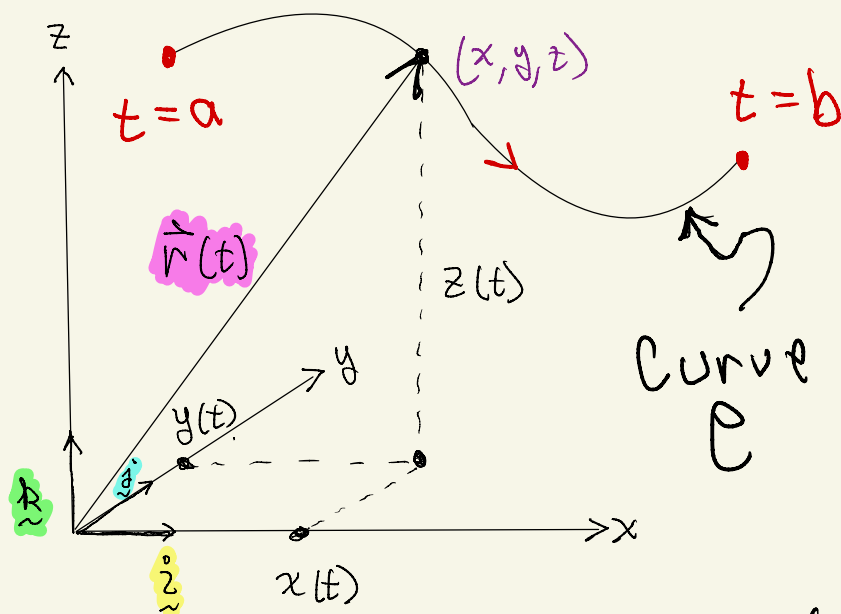 z
(x, y, z)
t = a
t = b
r⃗(t)
z(t)
Curve
C
y
y(t)
j
k
x
i
x(t)